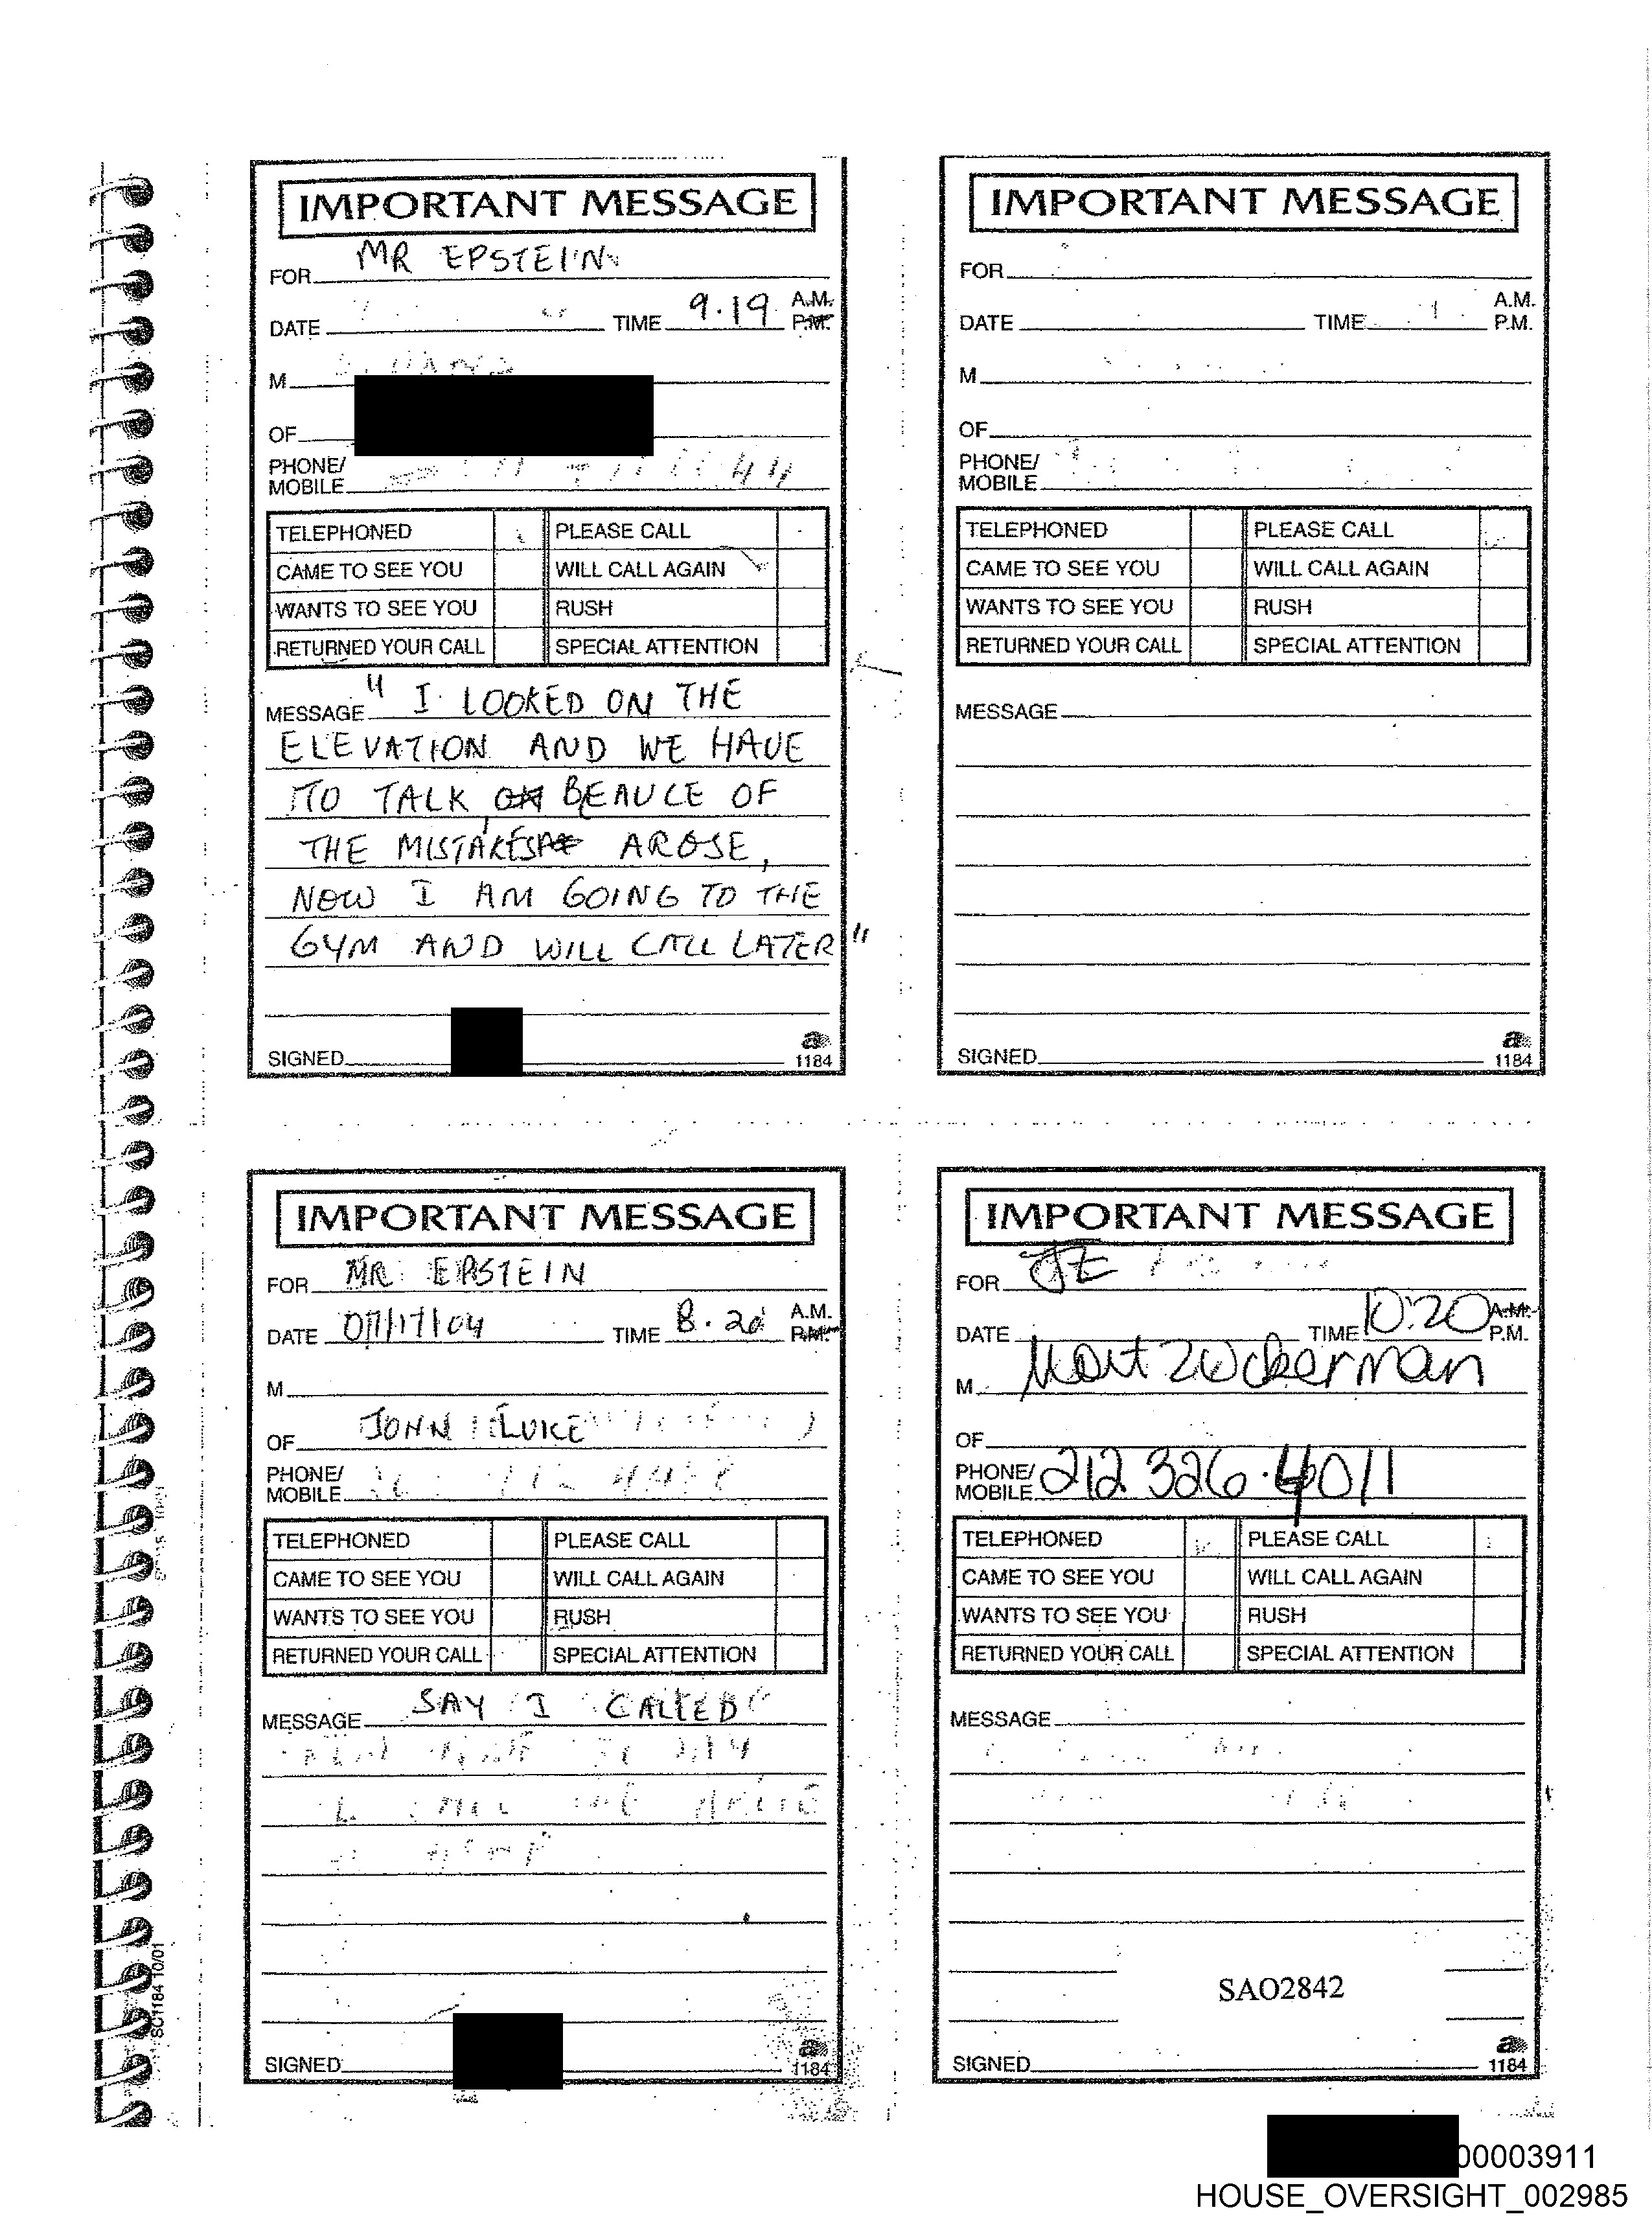 IMPORTANT MESSAGE
FOR MR EPSTEIN
DATE TIME 9.19 A.M. P.M.
M
OF
PHONE/
MOBILE 44
TELEPHONED PLEASE CALL
CAME TO SEE YOU WILL CALL AGAIN
WANTS TO SEE YOU RUSH
RETURNED YOUR CALL SPECIAL ATTENTION
MESSAGE " I LOOKED ON THE
ELEVATION AND WE HAVE
TO TALK BEAUCE OF
THE MISTAKES AROSE,
NOW I AM GOING TO THE
GYM AND WILL CALL LATER "
SIGNED
1184
IMPORTANT MESSAGE
FOR
DATE TIME A.M.
P.M.
M
OF
PHONE/
MOBILE
TELEPHONED PLEASE CALL
CAME TO SEE YOU WILL CALL AGAIN
WANTS TO SEE YOU RUSH
RETURNED YOUR CALL SPECIAL ATTENTION
MESSAGE
SIGNED
1184
IMPORTANT MESSAGE
FOR MR EPSTEIN
DATE 07/17/04 TIME 8.20 A.M. P.M.
M
OF JOHN LUKE
PHONE/
MOBILE
TELEPHONED PLEASE CALL
CAME TO SEE YOU WILL CALL AGAIN
WANTS TO SEE YOU RUSH
RETURNED YOUR CALL SPECIAL ATTENTION
MESSAGE SAY I CALLED
SIGNED
1184
SC1184 10/01
IMPORTANT MESSAGE
FOR JE
DATE TIME 10:20 A.M. P.M.
M Mort Zuckerman
OF
PHONE/
MOBILE 212 326.4011
TELEPHONED PLEASE CALL
CAME TO SEE YOU WILL CALL AGAIN
WANTS TO SEE YOU RUSH
RETURNED YOUR CALL SPECIAL ATTENTION
MESSAGE
SAO2842
SIGNED
1184
00003911
HOUSE_OVERSIGHT_002985